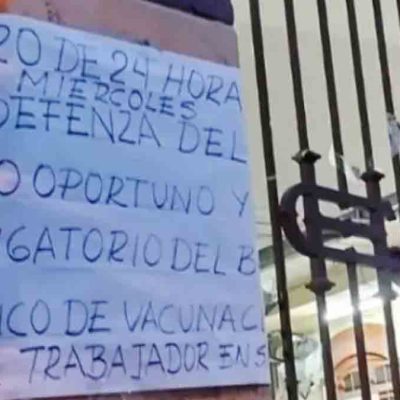 DE 24 HORA
MIERCOLES
DEFENZA DEL
O OPORTUNO Y
GATORIO DEL B
ICO DE VACUNAC
TRABAJADOR EN S